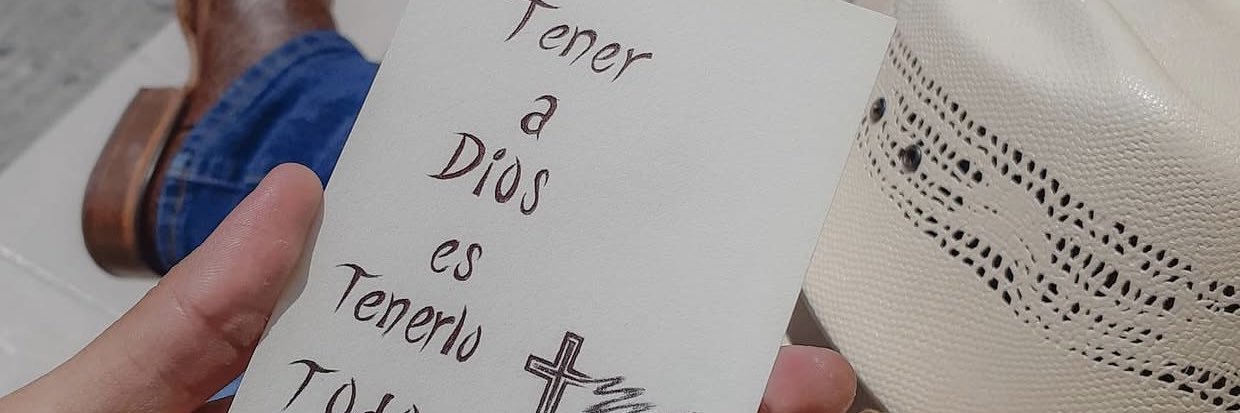 Tener
a
Dios
es
Tenerlo
Todo